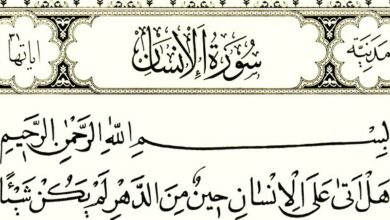 مدنية سورة الإنسان آياتها ٣١
بِسْمِ اللّٰهِ الرَّحْمٰنِ الرَّحِيمِ
هَلْ اَتٰى عَلَى الْاِنْسَانِ حِينٌ مِنَ الدَّهْرِ لَمْ يَكُنْ شَيْئًا